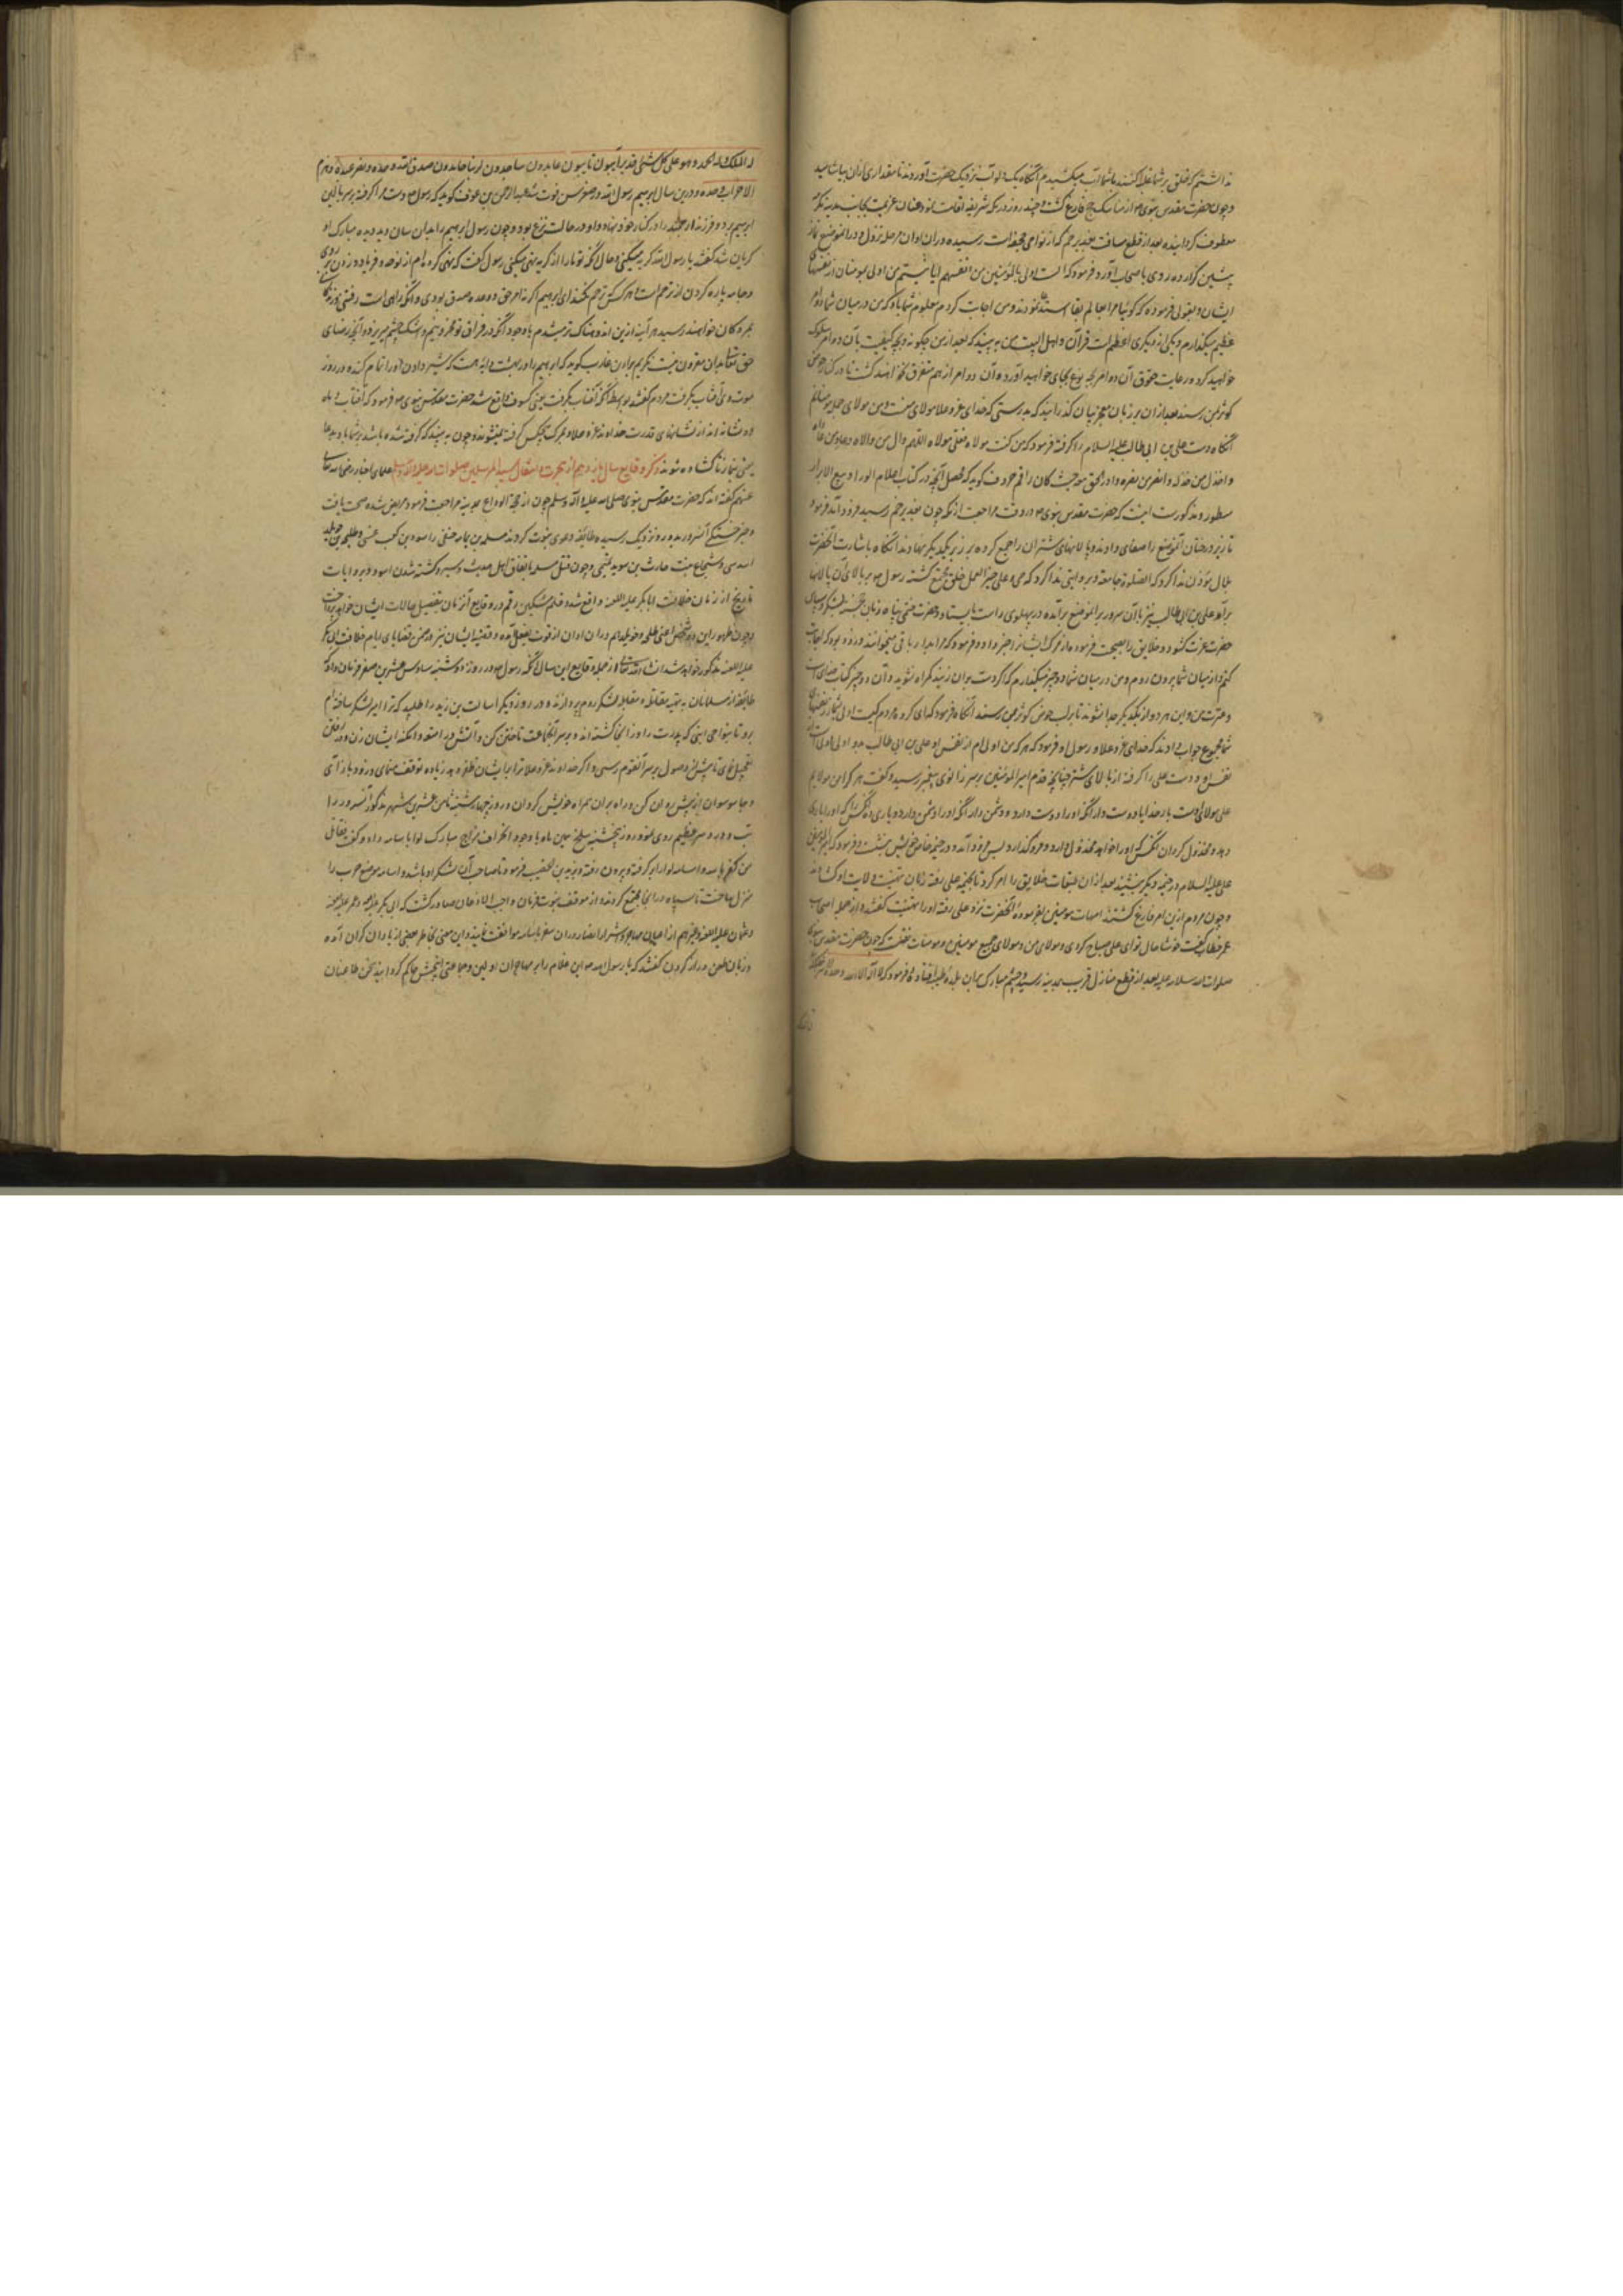 نداشتم که خلق بر شما غلبه کنند با شما آب میکشیدم آنگاه یک دلو آب نزدیک حضرت آوردند تا مقداری ازان بیاشامید
و چون حضرت مقدس نبوی از مناسک حج فارغ گشت و چند روز در مکه شریفه اقامت نمود عنان عزیمت بجانب مدینه مکرمه
معطوف گردانیده بعد از قطع مسافت بغدیر خم که از نواحی جحفه است رسیده دران اوان مرحله نزول و در آن موضع نماز
پیشین گزارده روی باصحاب آورد و فرمود که الست اولی بالمؤمنین من انفسهم ایا نیستم من اولی بمومنان از نفسهای
ایشان و بقولی فرموده که گوئیا مرا بعالم بقا نمودند و من اجابت کردم معلوم شما باد که من در میان شما دو امر
عظیم میگذارم و یکی از دیگری اعظم است قرآن و اهل البیت من به بینید که بعد از من چگونه و بچه کیفیت بآن دو امر سلوک
خواهید کرد و رعایت حقوق آن دو امر بچه نوع بجای خواهید آورد و آن دو امر از هم متفرق نخواهند گشت تا در کنار حوض
کوثر بمن رسند بعد ازان بر زبان معجز بیان گذرانید که بدرستی که خدای عز و علا مولای منست و من مولای جمله
آنگاه دست علی بن ابی طالب علیه السلام را گرفته فرمود که من کنت مولاه فعلی مولاه اللهم وال من والاه و عاد من عاداه
و اخذل من خذله و انصر من نصره و ادر الحق حیث کان راقم حروف گوید که محصل آنچه در کتاب اعلام الورا و ربیع الابرار
مسطور و مذکورست اینست که حضرت مقدس نبوی در وقت مراجعت از مکه چون بغدیر خم رسید فرود آمد فرمود
تا زیر درختان آن موضع را صفای دادند و پالانهای شتران را جمع کرده بر زبر یکدیگر نهادند آنگاه باشارت آنحضرت
بلال مؤذن ندا کرد که الصلوة جامعة و بروایتی ندا کرد که حی علی خیر العمل خلق مجتمع گشته رسول بر بالای آن پالانها
برآمد علی بن ابی طالب نیز با آن سرور بر آن موضع برآمده در پهلوی راست بایستاد و حضرت
حضرت عزت گشود و خلایق را نصیحت فرمود
کنم و از میان شما بیرون روم و من در میان شما دو چیز میگذارم که اگر دست بدان زنید گمراه نشوید و آن دو چیز کتاب خداست
و عترت من و این هر دو از یکدیگر جدا نشوند تا بر لب حوض کوثر بمن رسند آنگاه فرمود که ای گروه مردم کیست اولی بشما از نفسهای
شما مجموع جواب دادند که خدای عز و علا و رسول او فرمود که هر که من اولی ام از نفس او علی بن ابی طالب بدو اولی است از
نفس او و دست علی را گرفته از بالای شتر چنانچه قدم امیر المومنین بر سر زانوی پیغمبر رسید و گفت هر که را من مولایم
علی مولای اوست بار خدایا دوست دار آنکه او را دوست دارد و دشمن دار آنکه او را دشمن دارد و یاری ده آنکس را که او را یاری
دهد و مخذول گردان آنکس را که او را خواهد مخذول دارد و فرو گذارد پس فرود آمده در خیمه خاص خویش بنشست و فرمود که امیر المومنین
علی علیه السلام در خیمه دیگر بنشیند بعد ازان طبقات خلایق را امر کرد تا بخیمه علی رفته زبان تهنیت ولایت او گشادند
و چون مردم ازین امر فارغ گشتند امهات مومنین بفرموده آنحضرت نزد علی رفته او را تهنیت گفتند و از جمله اصحاب
عمر خطاب گفت خوشا حال تو ای علی صباح کردی و مولای من و مولای جمیع مومنین و مومنات چون حضرت مقدس نبوی
صلوات الله و سلامه علیه بعد از قطع منازل قریب مدینه رسید و چشم مبارک بران بلده طیبه افتاد فرمود که لا اله الا الله وحده لا شریک
له الملک و له الحمد و هو علی کل شئ قدیر آئبون تائبون عابدون ساجدون لربنا حامدون صدق الله وعده و نصر عبده و هزم
الاحزاب وحده و درین سال ابراهیم بن رسول الله در صغر سن فوت شد عبد الرحمن بن عوف گوید که رسول دست مرا گرفته بر سر بالین
ابراهیم برد و فرزند ارجمند را در کنار خود نهاد و او در حالت نزع بود و چون رسول ابراهیم را بدان سان دید دیده مبارک او
گریان شد گفتند یا رسول الله گریه میکنی و حال آنکه تو ما را از گریه نهی میکنی رسول گفت که نهی کرده ام از نوحه و فریاد و زدن بر روی
و جامه پاره کردن این از ترحم است و هر که ترحم نکند ای ابراهیم اگر نه امر حق و وعده صدق بودی و آنکه راهی است رفتنی
بمردگان خواهند رسید هر آینه ازین اندوهناک تر میشدم با وجود آنکه در فراق تو محزونیم و اشک چشم میریزد و آنچه رضای
حق تعالی بدان مقرون نیست نگوییم براء بن عازب گوید که ابراهیم را در بهشت دایه هست که شیر دادن او را تمام کند و در روز
موت وی آفتاب بگرفت مردم گفتند بواسطه آنکه آفتاب بگرفت یعنی کسوف واقع شد حضرت مقدس نبوی فرمود که آفتاب و ماه
دو نشانه اند از نشانهای قدرت خداوند عز و علا و بمرگ هیچکس گرفته نمیشوند و چون به بینید که گرفته شده باشد بر شما باد بدعا
یعنی نماز تا گشاده شوند ذکر وقایع سال یازدهم از هجرت و انتقال سید المرسلین صلوات الله علیه و آله و سلم علمای اخبار رضی الله تعالی
عنهم گفته اند که حضرت مقدس نبوی صلی الله علیه و آله و سلم چون از حجة الوداع بمدینه مراجعت فرمود مریض شده صحت یافت
و خبر خستگی آن سرور بدور و نزدیک رسیده طائفه دعوی نبوت کردند مسیلمه بن ثمامه حنفی و اسود بن کعب عنسی و طلیحه بن خویلد
اسدی و سجاح بنت حارث بن سوید تمیمی و چون قتل مسیلمه باتفاق اهل حدیث و سیر و کشته شدن اسود بروایات
تاریخ از زمان خلافت ابابکر علیه اللعنه واقع شده قلم مشکین رقم در وقایع آن زمان بتفصیل حالات ایشان خواهد پرداخت
و چون ظهور این دو شخص اعنی طلیحه و خویله هم دران اوان از قوت بفعل آمده و قضیه ایشان نیز در ضمن قضایای ایام خلافت ابی بکر
علیه اللعنه مذکور خواهد شد انشاء الله تعالی و از جمله وقایع این سال آنکه رسول در روز دوشنبه سادس عشرین صفر فرمان داد که
طائفه از مسلمانان به تهیه مقاتله و مقابله لشکر روم پردازند و در روز دیگر اسامة بن زید را طلبید که ترا امیر لشکر ساخته ام
برو تا بنواحی ابنی که پدرت را در آنجا کشته اند و بر سر آنجماعت تاختن کن و آتش در امتعه و امکنه ایشان زن و در رفتن
تعجیل نمای تا پیش از وصول بر سر آن قوم رسی و اگر خداوند عز و علا ترا بر ایشان ظفر دهد زیاده توقف منمای و زود باز آی
و جاسوسان از پیش روان کن و راه بران همراه خویش گردان و روز چهارشنبه ثامن عشرین شهر مذکور آن سرور را
تب و درد سر عظیم روی نمود روز پنجشنبه سلخ همین ماه با وجود انحراف مزاج مبارک لوا باسامه داد و گفت قاتل
من کفر بالله و اسامه لوا را بر گرفته بیرون رفته و ببریدة بن الحصیب فرمود تا صاحب آن لشکر او باشد و اسامه موضع جرف را
منزل ساخت تا سپاه در آنجا مجتمع گردند و از موقف نبوت فرمان واجب الاذعان صادر گشت که ابی بکر علیه اللعنه و عمر علیه اللعنه
و عثمان علیه اللعنه و غیرهم از اعیان مهاجر و اشراف انصار دران سفر با اسامه موافقت نمایند و این معنی بخاطر بعضی از یاران گران آمده
و زبان طعن دراز کردن گفتند که یا رسول الله این غلام را بر مهاجران اولین حاکم گردانید سخن طاعنان